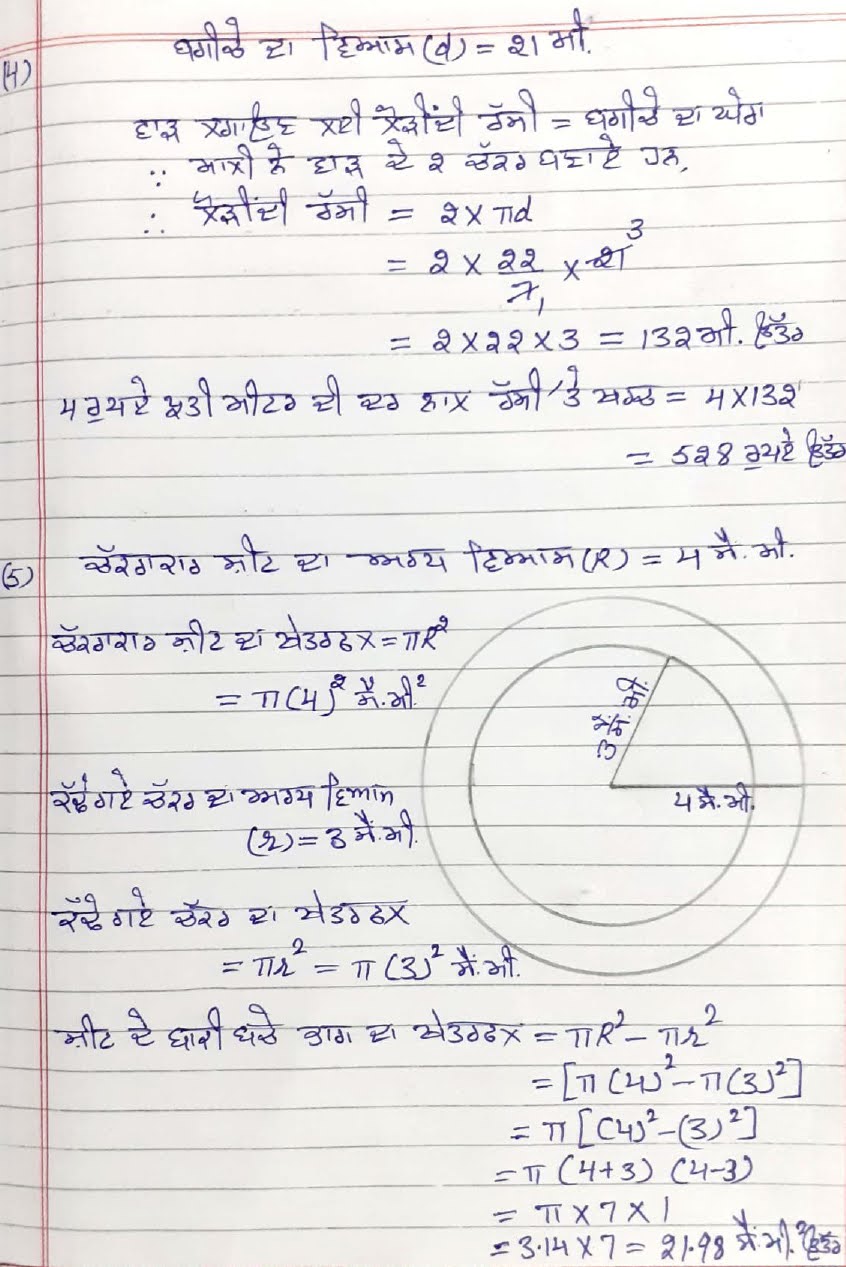 (4) ਬਗੀਚੇ ਦਾ ਵਿਆਸ (d) = 21 ਮੀ.
ਵਾੜ ਲਗਾਉਣ ਲਈ ਲੋੜੀਂਦੀ ਰੱਸੀ = ਬਗੀਚੇ ਦਾ ਘੇਰਾ
∵ ਮਾਲੀ ਨੇ ਵਾੜ ਦੇ 2 ਚੱਕਰ ਬਣਾਏ ਹਨ,
∴ ਲੋੜੀਂਦੀ ਰੱਸੀ = 2 × πd
= 2 × 22/7 1 × 21 3
= 2 × 22 × 3 = 132 ਮੀ. ਉੱਤਰ
4 ਰੁਪਏ ਪ੍ਰਤੀ ਮੀਟਰ ਦੀ ਦਰ ਨਾਲ ਰੱਸੀ 'ਤੇ ਖਰਚ = 4 × 132
= 528 ਰੁਪਏ ਉੱਤਰ
(5) ਚੱਕਰਾਕਾਰ ਸ਼ੀਟ ਦਾ ਅਰਧ ਵਿਆਸ (R) = 4 ਸੈਂ. ਮੀ.
ਚੱਕਰਾਕਾਰ ਸ਼ੀਟ ਦਾ ਖੇਤਰਫਲ = πR²
= π(4)² ਸੈਂ.ਮੀ.²
3 ਸੈਂ. ਮੀ.
4 ਸੈਂ.ਮੀ.
ਕੱਢੇ ਗਏ ਚੱਕਰ ਦਾ ਅਰਧ ਵਿਆਸ
(r) = 3 ਸੈਂ.ਮੀ.
ਕੱਢੇ ਗਏ ਚੱਕਰ ਦਾ ਖੇਤਰਫਲ
= πr² = π (3)² ਸੈਂ.ਮੀ.
ਸ਼ੀਟ ਦੇ ਬਾਕੀ ਬਚੇ ਭਾਗ ਦਾ ਖੇਤਰਫਲ = πR² - πr²
= [π (4)² - π(3)²]
= π [(4)² - (3)²]
= π (4+3) (4-3)
= π × 7 × 1
= 3.14 × 7 = 21.98 ਸੈਂ.ਮੀ.² ਉੱਤਰ